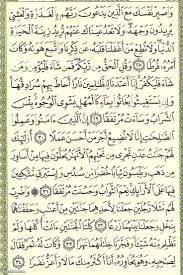 وَاصْبِرْ نَفْسَكَ مَعَ الَّذِينَ يَدْعُونَ رَبَّهُم بِالْغَدَوٰةِ وَالْعَشِيِّ
يُرِيدُونَ وَجْهَهُۥ وَلَا تَعْدُ عَيْنَاكَ عَنْهُمْ تُرِيدُ زِينَةَ الْحَيَوٰةِ
الدُّنْيَا وَلَا تُطِعْ مَنْ أَغْفَلْنَا قَلْبَهُۥ عَن ذِكْرِنَا وَاتَّبَعَ هَوَىٰهُ وَكَانَ
أَمْرُهُۥ فُرُطًا ٢٨ وَقُلِ الْحَقُّ مِن رَّبِّكُمْ فَمَن شَآءَ فَلْيُؤْمِن وَمَن
شَآءَ فَلْيَكْفُرْ إِنَّآ أَعْتَدْنَا لِلظَّٰلِمِينَ نَارًا أَحَاطَ بِهِمْ سُرَادِقُهَا
وَإِن يَسْتَغِيثُوا يُغَاثُوا بِمَآءٍ كَالْمُهْلِ يَشْوِي الْوُجُوهَ بِئْسَ
الشَّرَابُ وَسَآءَتْ مُرْتَفَقًا ٢٩ إِنَّ الَّذِينَ ءَامَنُوا وَعَمِلُوا
الصَّٰلِحَٰتِ إِنَّا لَا نُضِيعُ أَجْرَ مَنْ أَحْسَنَ عَمَلًا ٣٠ أُولَٰٓئِكَ
لَهُمْ جَنَّٰتُ عَدْنٍ تَجْرِي مِن تَحْتِهِمُ الْأَنْهَٰرُ يُحَلَّوْنَ فِيهَا مِنْ أَسَاوِرَ
مِن ذَهَبٍ وَيَلْبَسُونَ ثِيَابًا خُضْرًا مِّن سُندُسٍ وَإِسْتَبْرَقٍ مُّتَّكِـِٔينَ
فِيهَا عَلَى الْأَرَآئِكِ نِعْمَ الثَّوَابُ وَحَسُنَتْ مُرْتَفَقًا ٣١ وَاضْرِبْ
لَهُم مَّثَلًا رَّجُلَيْنِ جَعَلْنَا لِأَحَدِهِمَا جَنَّتَيْنِ مِنْ أَعْنَٰبٍ وَحَفَفْنَٰهُمَا
بِنَخْلٍ وَجَعَلْنَا بَيْنَهُمَا زَرْعًا ٣٢ كِلْتَا الْجَنَّتَيْنِ ءَاتَتْ أُكُلَهَا وَلَمْ
تَظْلِم مِّنْهُ شَيْـًٔا وَفَجَّرْنَا خِلَٰلَهُمَا نَهَرًا ٣٣ وَكَانَ لَهُۥ ثَمَرٌ فَقَالَ
لِصَٰحِبِهِۦ وَهُوَ يُحَاوِرُهُۥٓ أَنَا۠ أَكْثَرُ مِنكَ مَالًا وَأَعَزُّ نَفَرًا ٣٤